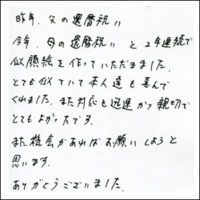 昨年、父の還暦祝い
今年、母の還暦祝い と 2年連続で
似顔絵を作っていただきました。
とても似ていて本人達も喜んで
くれました。また対応も迅速かつ親切で
とてもよかったです。
また機会があればお願いしようと
思います。
ありがとうございました。